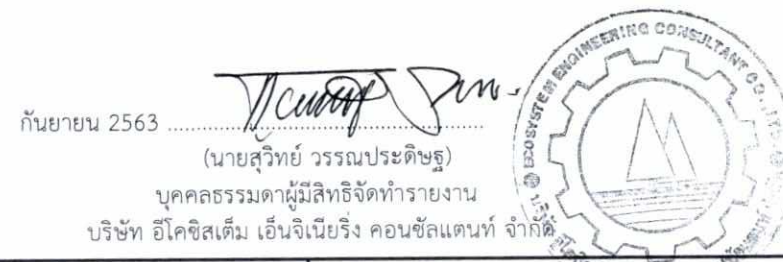 กันยายน 2563 ..........................................
(นายสุวิทย์ วรรณประดิษฐ)
บุคคลธรรมดาผู้มีสิทธิจัดทำรายงาน
บริษัท อีโคซิสเต็ม เอ็นจิเนียริ่ง คอนซัลแตนท์ จำกัด
ECOSYSTEM ENGINEERING CONSULTANT CO., LTD.